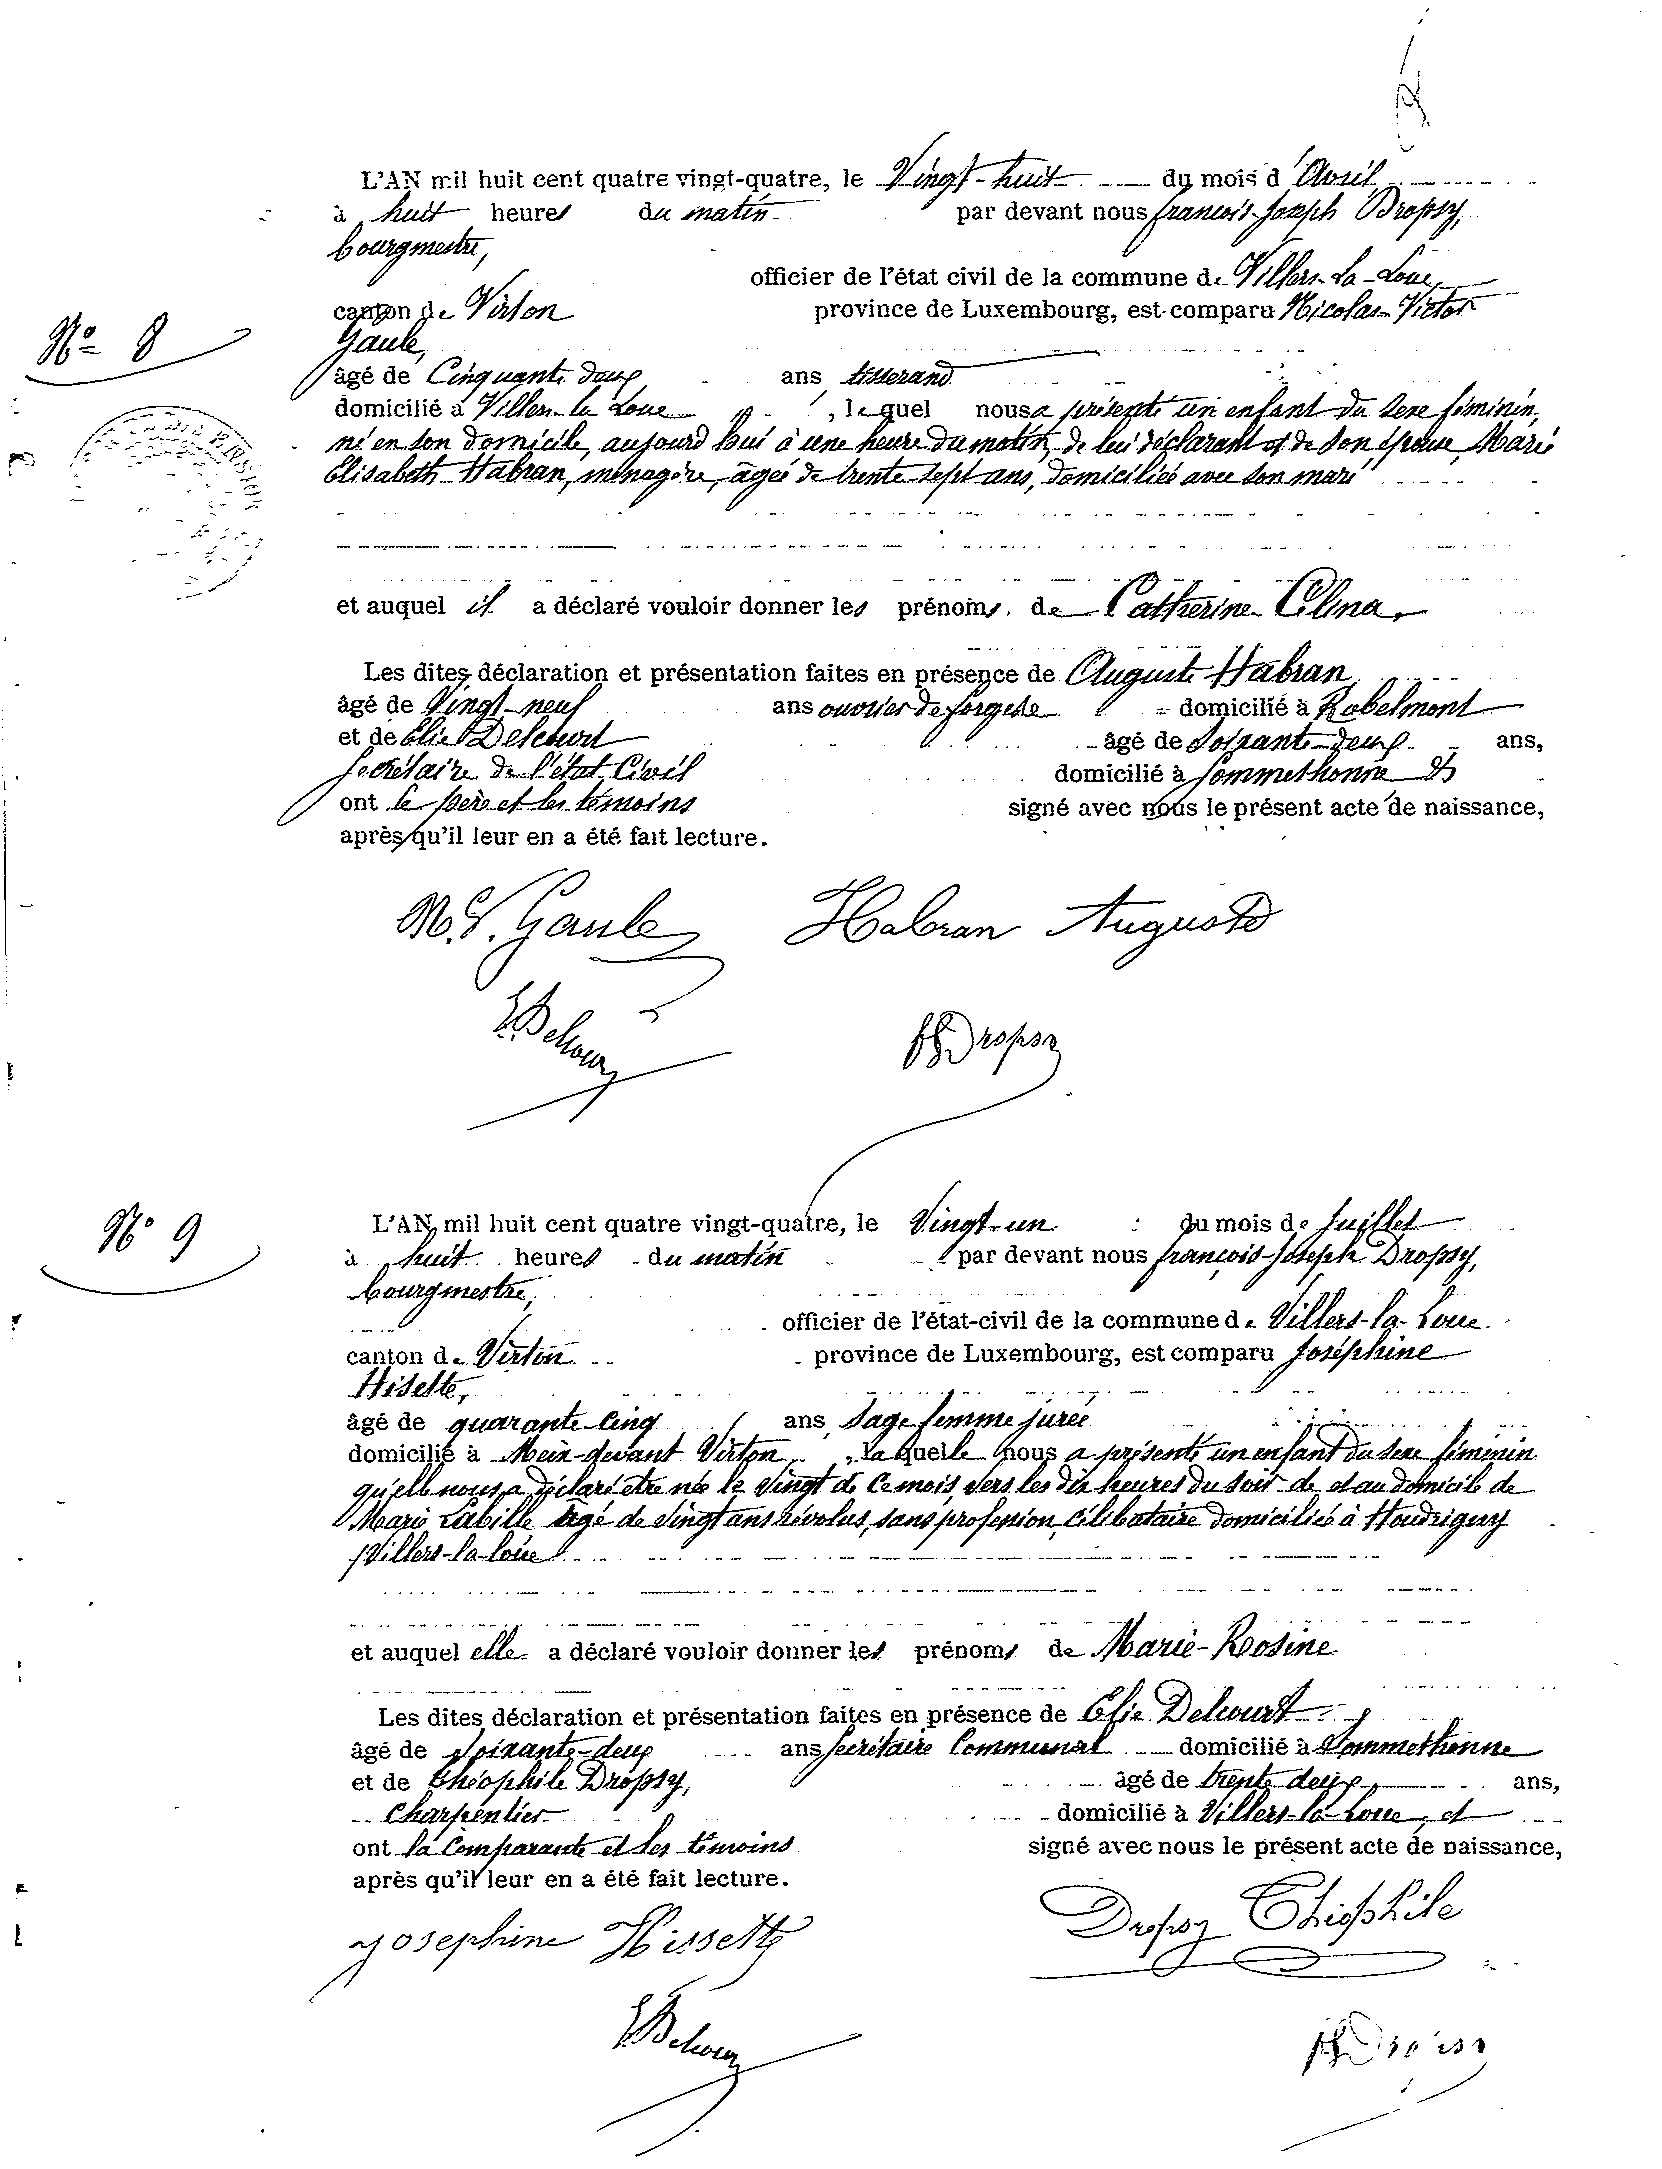 L'AN mil huit cent quatre vingt-quatre, le Vingt-huit du mois d'Avril
à huit heures du matin par devant nous françois-Joseph Dropsy,
bourgmestre,
officier de l'état civil de la commune de Villers-la-Loue
canton de Virton province de Luxembourg, est comparu Nicolas-Victor
N° 8
Gaule,
âgé de Cinquante deux ans tisserand
domicilié à Villers-la Loue, lequel nous a présenté un enfant du sexe féminin,
né en son domicile, aujourd'hui à une heure du matin, de lui déclarant et de son épouse, Marie
Elisabeth Habran, ménagère, âgée de trente sept ans, domiciliée avec son mari
et auquel il a déclaré vouloir donner les prénoms de Catherine-Célina,
Les dites déclaration et présentation faites en présence de Auguste Habran,
âgé de Vingt-neuf ans ouvrier de forges domicilié à Robelmont
et de Elie Delcourt âgé de Soixante-deux ans,
Secrétaire de l'état Civil domicilié à Sommethonne et
ont le père et les témoins signé avec nous le présent acte de naissance,
après qu'il leur en a été fait lecture.
N.V. Gaule Habran Auguste
E. Delcourt FJ Dropsy
N° 9
L'AN mil huit cent quatre vingt-quatre, le Vingt-un du mois de Juillet
à huit heures du matin par devant nous françois-Joseph Dropsy,
bourgmestre,
officier de l'état-civil de la commune de Villers-la-Loue
canton de Virton province de Luxembourg, est comparu Joséphine
Hisette,
âgé de quarante-cinq ans, Sage femme jurée
domicilié à Meix-devant Virton, laquelle nous a présenté un enfant du sexe féminin
qu'elle nous a déclaré être née le vingt de ce mois, vers les dix heures du soir de et au domicile de
Marie Labille âgé de vingt ans révolus, sans profession, célibataire domiciliée à Houdrigny
Villers-la-loue
et auquel elle a déclaré vouloir donner les prénoms de Marie-Rosine
Les dites déclaration et présentation faites en présence de Elie Delcourt
âgé de Soixante-deux ans Secrétaire Communal domicilié à Sommethonne
et de Théophile Dropsy, âgé de trente deux, ans,
Charpentier domicilié à Villers-la-Loue, et
ont la Comparante et les témoins signé avec nous le présent acte de naissance,
après qu'il leur en a été fait lecture.
Josephine Hissette Dropsy Théophile
E. Delcourt FJ Dropsy